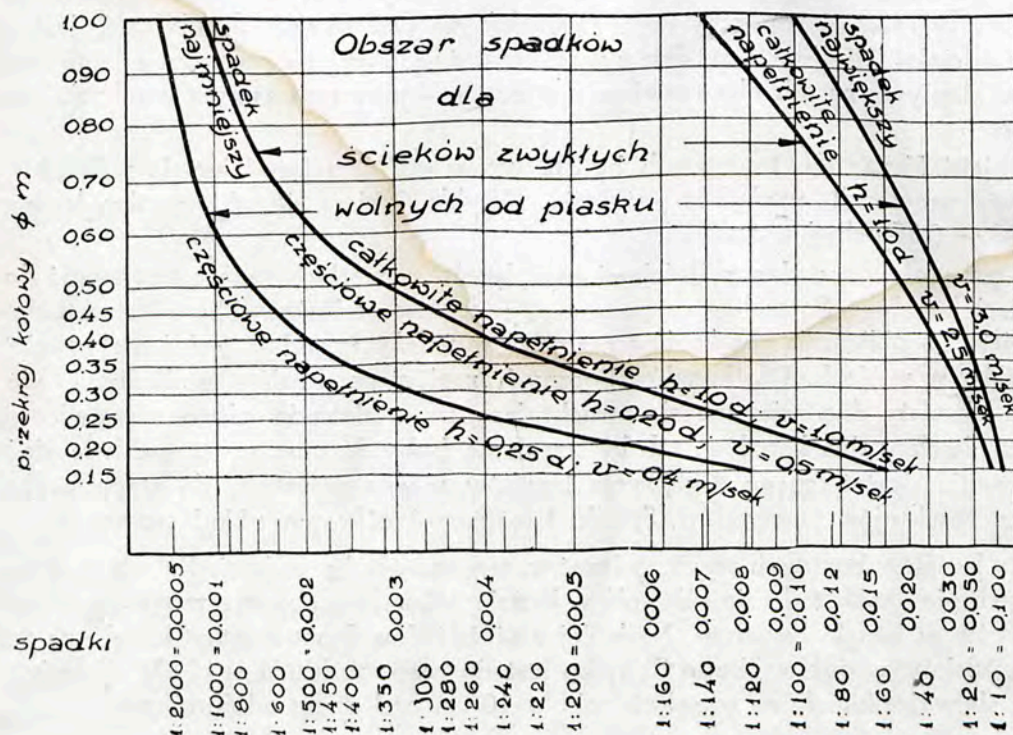 1.00
0,90
0,80
0,70
0,60
0,50
0,40
0,35
0,30
0,25
0,15
Dłzeinaj kołowy φ m
Obszar spadków
dla
ścieków zwykłych
wolnych od piasku
spadek
najmniejszy
spadek
największy
całkowite
napełnienie h=1.0d v=2.5 m/sek
v=3,0 m/sek
całkowite napełnienie h=1.0 d, v=1,0 m/sek
częściowe napełnienie h=0,20 d; v=0,5 m/sek
częściowe napełnienie h=0,25 d; v=0,4 m/sek
spadki
1:2000=0,0005
1:1000=0.001
1:800
1:600
1:500=0.002
1:450
1:400
1:350 0,003
1:300
1:280
1:260
1:240 0,004
1:220
1:200=0,005
1:160 0,006
1:140 0,007
1:120 0,008
0,009
1:100=0,010
1:80 0,012
1:60 0,015
1:40 0,020
0,030
1:20=0,050
1:10=0,100